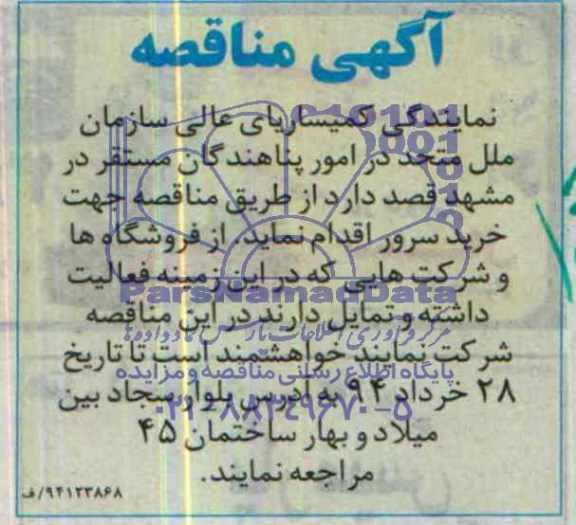 آگهی مناقصه
نمایندگی کمیساریای عالی سازمان
ملل متحد در امور پناهندگان مستقر در
مشهد قصد دارد از طریق مناقصه جهت
خرید سرور اقدام نماید. از فروشگاه ها
و شرکت هایی که در این زمینه فعالیت
ParsNamadData
داشته و تمایل دارند در این مناقصه
مرکز فرآوری اطلاعات پارس نماد داده ها
شرکت نمایند خواهشمند است تا تاریخ
پایگاه اطلاع رسانی مناقصه و مزایده
۲۸ خرداد ۹۴ به آدرس بلوار سجاد بین
۰۲۱-۸۸۳۴۹۶۷۰-۵
میلاد و بهار ساختمان ۴۵
مراجعه نمایند.
۹۴۱۲۳۸۶۸/ف